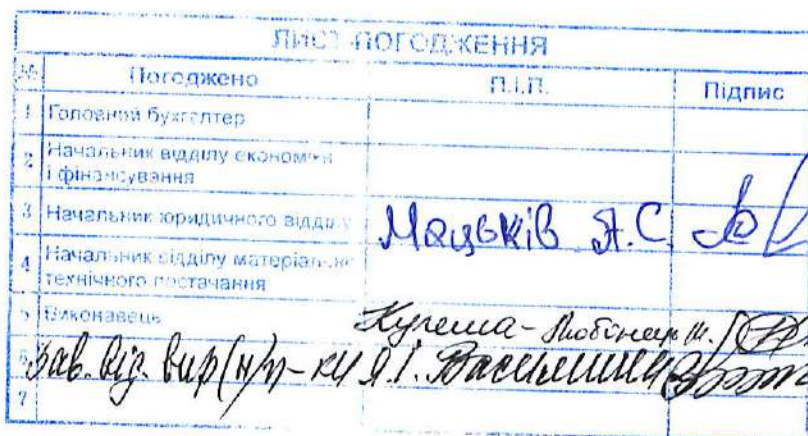 ЛИСТ ПОГОДЖЕННЯ
№ Погоджено П.І.П. Підпис
1 Головний бухгалтер
2 Начальник відділу економіки
і фінансування
3 Начальник юридичного відділу Мацьків А.С.
4 Начальник відділу матеріально
технічного постачання
5 Виконавець
6 Зав. від.
7